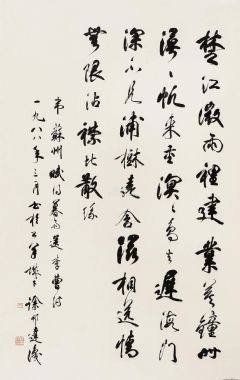 楚江微雨裡建業暮鐘時
漠〻帆來重冥〻鳥去遲海門
深不見浦樹遠含滋相送情
無限沾襟比散絲
韋蘇州賦得暮雨送李曹詩
一九八八年三月書於